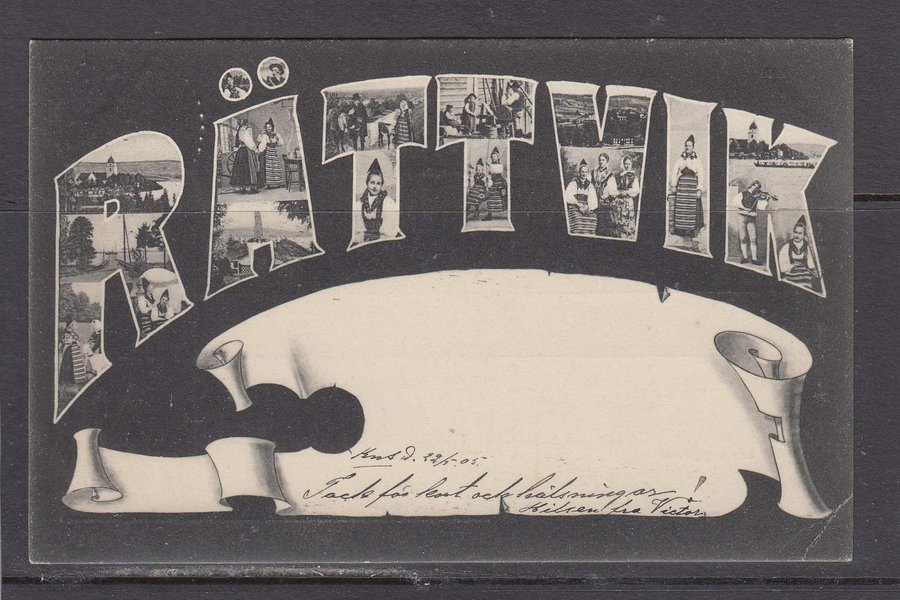 RÄTTVIK
22/5 05.
Tack för kort och hälsningar!
Hilsen fra Victor.